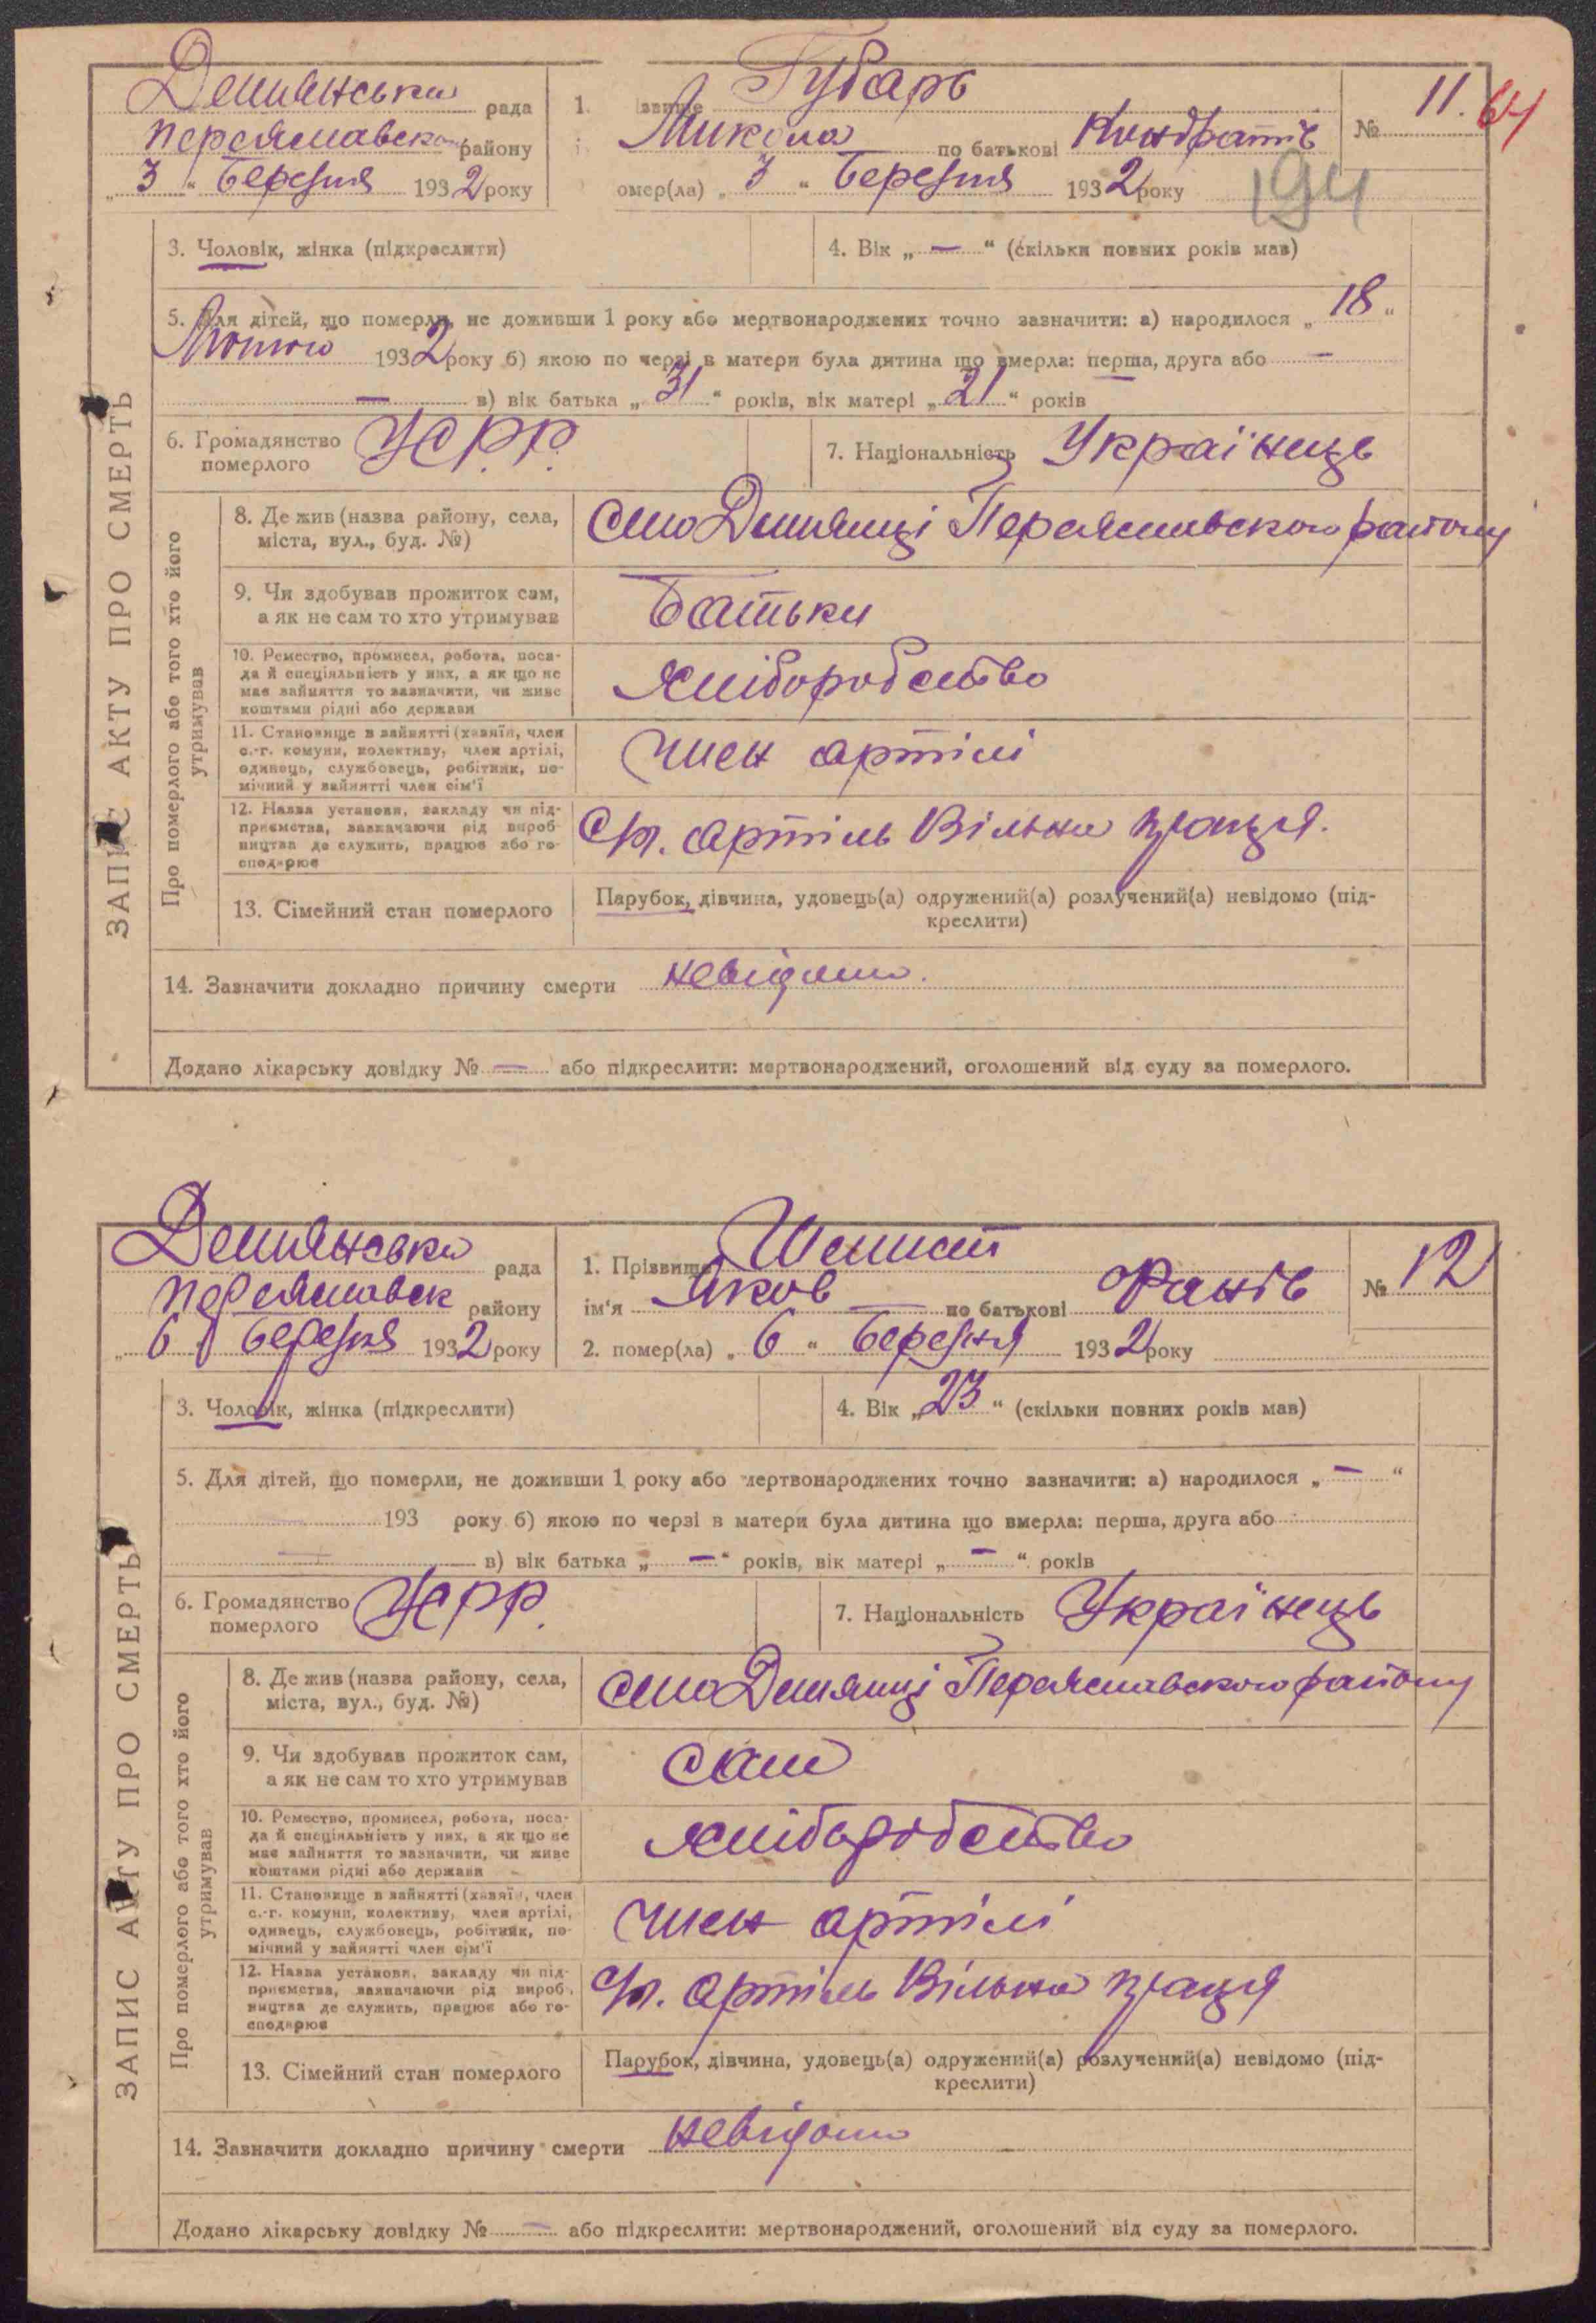 Демянська рада
Переяславськ району
„3“ Березня 1932 року
1. звище Губарь
Микола по батькові Кондратів
омер(ла) „3“ Березня 1932 року
№ 11. 64
194
ЗАПИС АКТУ ПРО СМЕРТЬ
3. Чоловік, жінка (підкреслити)
4. Вік „—“ (скільки повних років мав)
5. Для дітей, що померли, не доживши 1 року або мертвонароджених точно зазначити: а) народилося „18“
Лютого 1932 року б) якою по черзі в матери була дитина що вмерла: перша, друга або —
— в) вік батька „31“ років, вік матері „21“ років
6. Громадянство померлого УСРР.
7. Національність Українець
Про померлого або того хто його утримував
8. Де жив (назва району, села,
міста, вул., буд. №)
село Демянці Переяславского району
9. Чи здобував прожиток сам,
а як не сам то хто утримував
Батьки
10. Ремество, промисел, робота, поса-
да й спеціяльність у них, а як що не
має зайняття то зазначити, чи живе
коштами рідні або держави
хліборобство
11. Становище в зайнятті (хазяїн, член
с.-г. комуни, колективу, член артілі,
одинець, службовець, робітник, по-
мічний у зайнятті член сім'ї
член артілі
12. Назва установи, закладу чи під-
приємства, зазначаючи рід вироб-
ництва де служить, працює або го-
сподарює
артіль Вільна праця.
13. Сімейний стан померлого
Парубок, дівчина, удовець(а) одружений(а) розлучений(а) невідомо (під-
креслити)
14. Зазначити докладно причину смерти невідомо.
Додано лікарську довідку № — або підкреслити: мертвонароджений, оголошений від суду за померлого.
Демянська рада
Переяславськ району
„6“ Березня 1932 року
1. Прізвище Шемет
ім'я Яков — по батькові
2. помер(ла) „6“ Березня 1932 року
№ 12
ЗАПИС АКТУ ПРО СМЕРТЬ
3. Чоловік, жінка (підкреслити)
4. Вік „23“ (скільки повних років мав)
5. Для дітей, що померли, не доживши 1 року або мертвонароджених точно зазначити: а) народилося „—“
— 193 року б) якою по черзі в матери була дитина що вмерла: перша, друга або
— в) вік батька „—“ років, вік матері „—“ років
6. Громадянство померлого УСРР.
7. Національність Українець
Про померлого або того хто його утримував
8. Де жив (назва району, села,
міста, вул., буд. №)
село Демянці Переяславского району
9. Чи здобував прожиток сам,
а як не сам то хто утримував
сам
10. Ремество, промисел, робота, поса-
да й спеціяльність у них, а як що не
має зайняття то зазначити, чи живе
коштами рідні або держави
хліборобство
11. Становище в зайнятті (хазяїн, член
с.-г. комуни, колективу, член артілі,
одинець, службовець, робітник, по-
мічний у зайнятті член сім'ї
член артілі
12. Назва установи, закладу чи під-
приємства, зазначаючи рід вироб-
ництва де служить, працює або го-
сподарює
артіль Вільна праця
13. Сімейний стан померлого
Парубок, дівчина, удовець(а) одружений(а) розлучений(а) невідомо (під-
креслити)
14. Зазначити докладно причину смерти невідомо
Додано лікарську довідку № — або підкреслити: мертвонароджений, оголошений від суду за померлого.